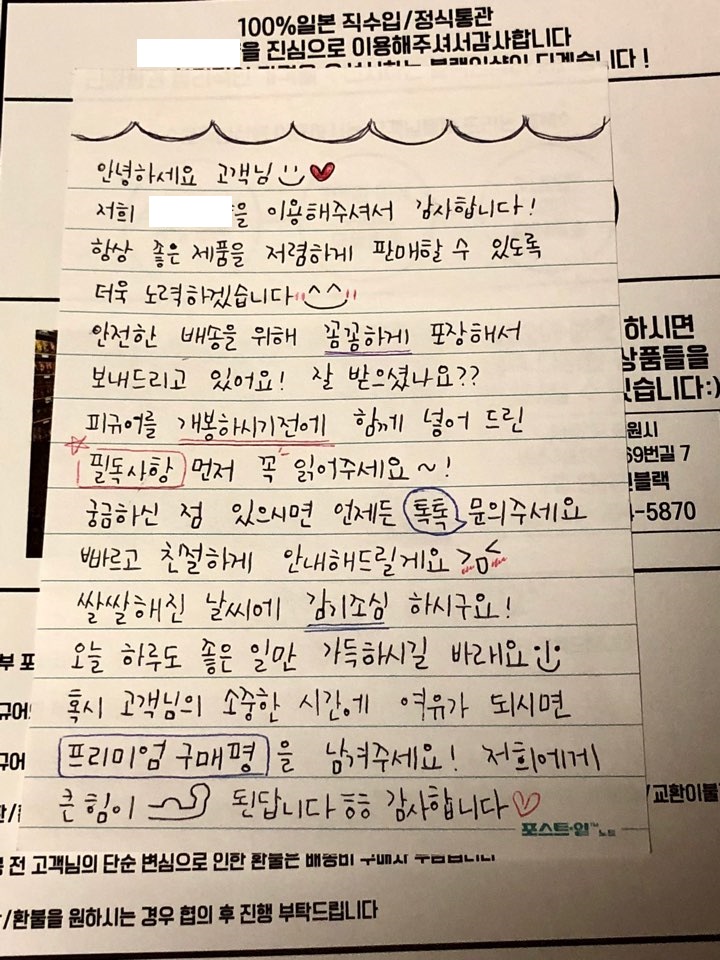 100%일본 직수입/정식통관
을 진심으로 이용해주셔서감사합니다
안녕하세요 고객님
저희 을 이용해주셔서 감사합니다!
항상 좋은 제품을 저렴하게 판매할 수 있도록
더욱 노력하겠습니다 ^^
안전한 배송을 위해 꼼꼼하게 포장해서
보내드리고 있어요! 잘 받으셨나요??
피규어를 개봉하시기전에 함께 넣어 드린
필독사항 먼저 꼭 읽어주세요~!
궁금하신 점 있으시면 언제든 톡톡 문의주세요
빠르고 친절하게 안내해드릴게요 >ㅁ<
쌀쌀해진 날씨에 감기조심 하시구요!
오늘 하루도 좋은 일만 가득하시길 바래요
혹시 고객님의 소중한 시간에 여유가 되시면
프리미엄 구매평을 남겨주세요! 저희에게
큰 힘이 된답니다 ㅎㅎ 감사합니다
포스트-잇™ 노트
하시면
상품들을
있습니다:)
원시
69번길 7
블랙
4-5870
/교환이불
전 고객님의 단순 변심으로 인한 환불은 배송비
/환불을 원하시는 경우 협의 후 진행 부탁드립니다